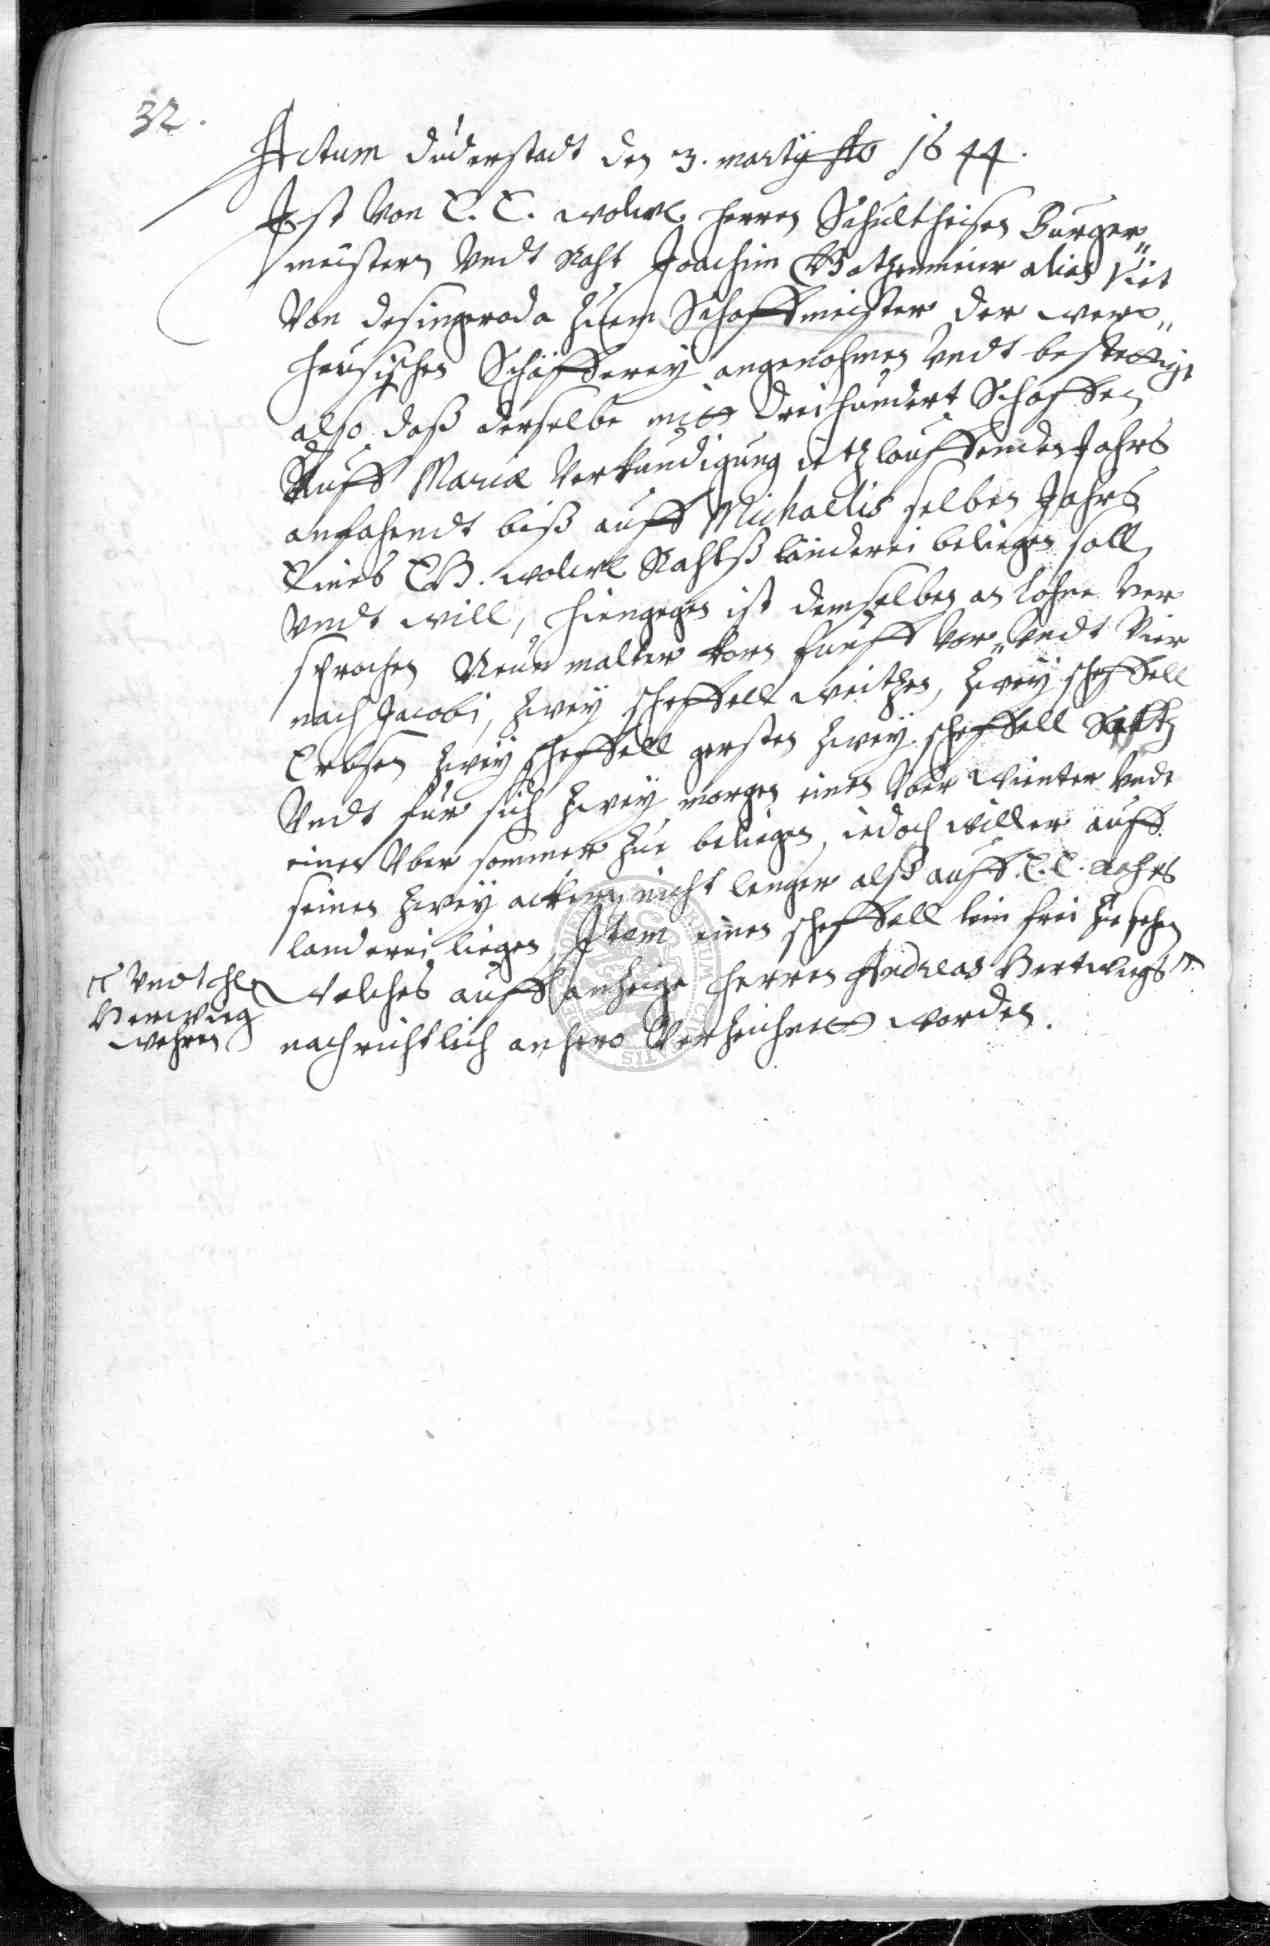 32.
Actum Duderstadt den 3. Martij Ao 1644.
Ist von E. E. wolw. Herren Schultheisen Burger„
meistern Undt Raht Joachim alias Veit
Von Desingeroda Zuem Schaffmeister der wer„
heusischen Schäfferey angenohmen Undt bestettigt
also daß derselbe mitt dreihundert Schaffen
Auff Mariæ Verkundigung ietzlauffenden Jahrs
anfahendt biß auff Michaelis selben Jahrs
Eines E. wolw. Rahtß länderei beliegen soll
Undt will, hiengegen ist demselben an Lohne Ver
sprochen Neun malter korn funff Vor„ Undt Vier
nach Jacobi, Zwey scheffell weitzen, Zwey scheffell
Erbsen Zwey scheffell gersten Zwey scheffell Saltz
Undt für sich Zwey morgen einen Vber Winter Undt
einen Vber sommer Zue beliegen, iedoch will er auff
seinen Zwey ackern nicht lenger alß auff E. E. Rahts
landerei liegen, Item einen scheffell lein frei Zu sehen
Welches auff anzeige Herren Andreas Hertwigs
Undt
Hertwieg
wehren
nachrichtlich anhero Verzeichnett worden.